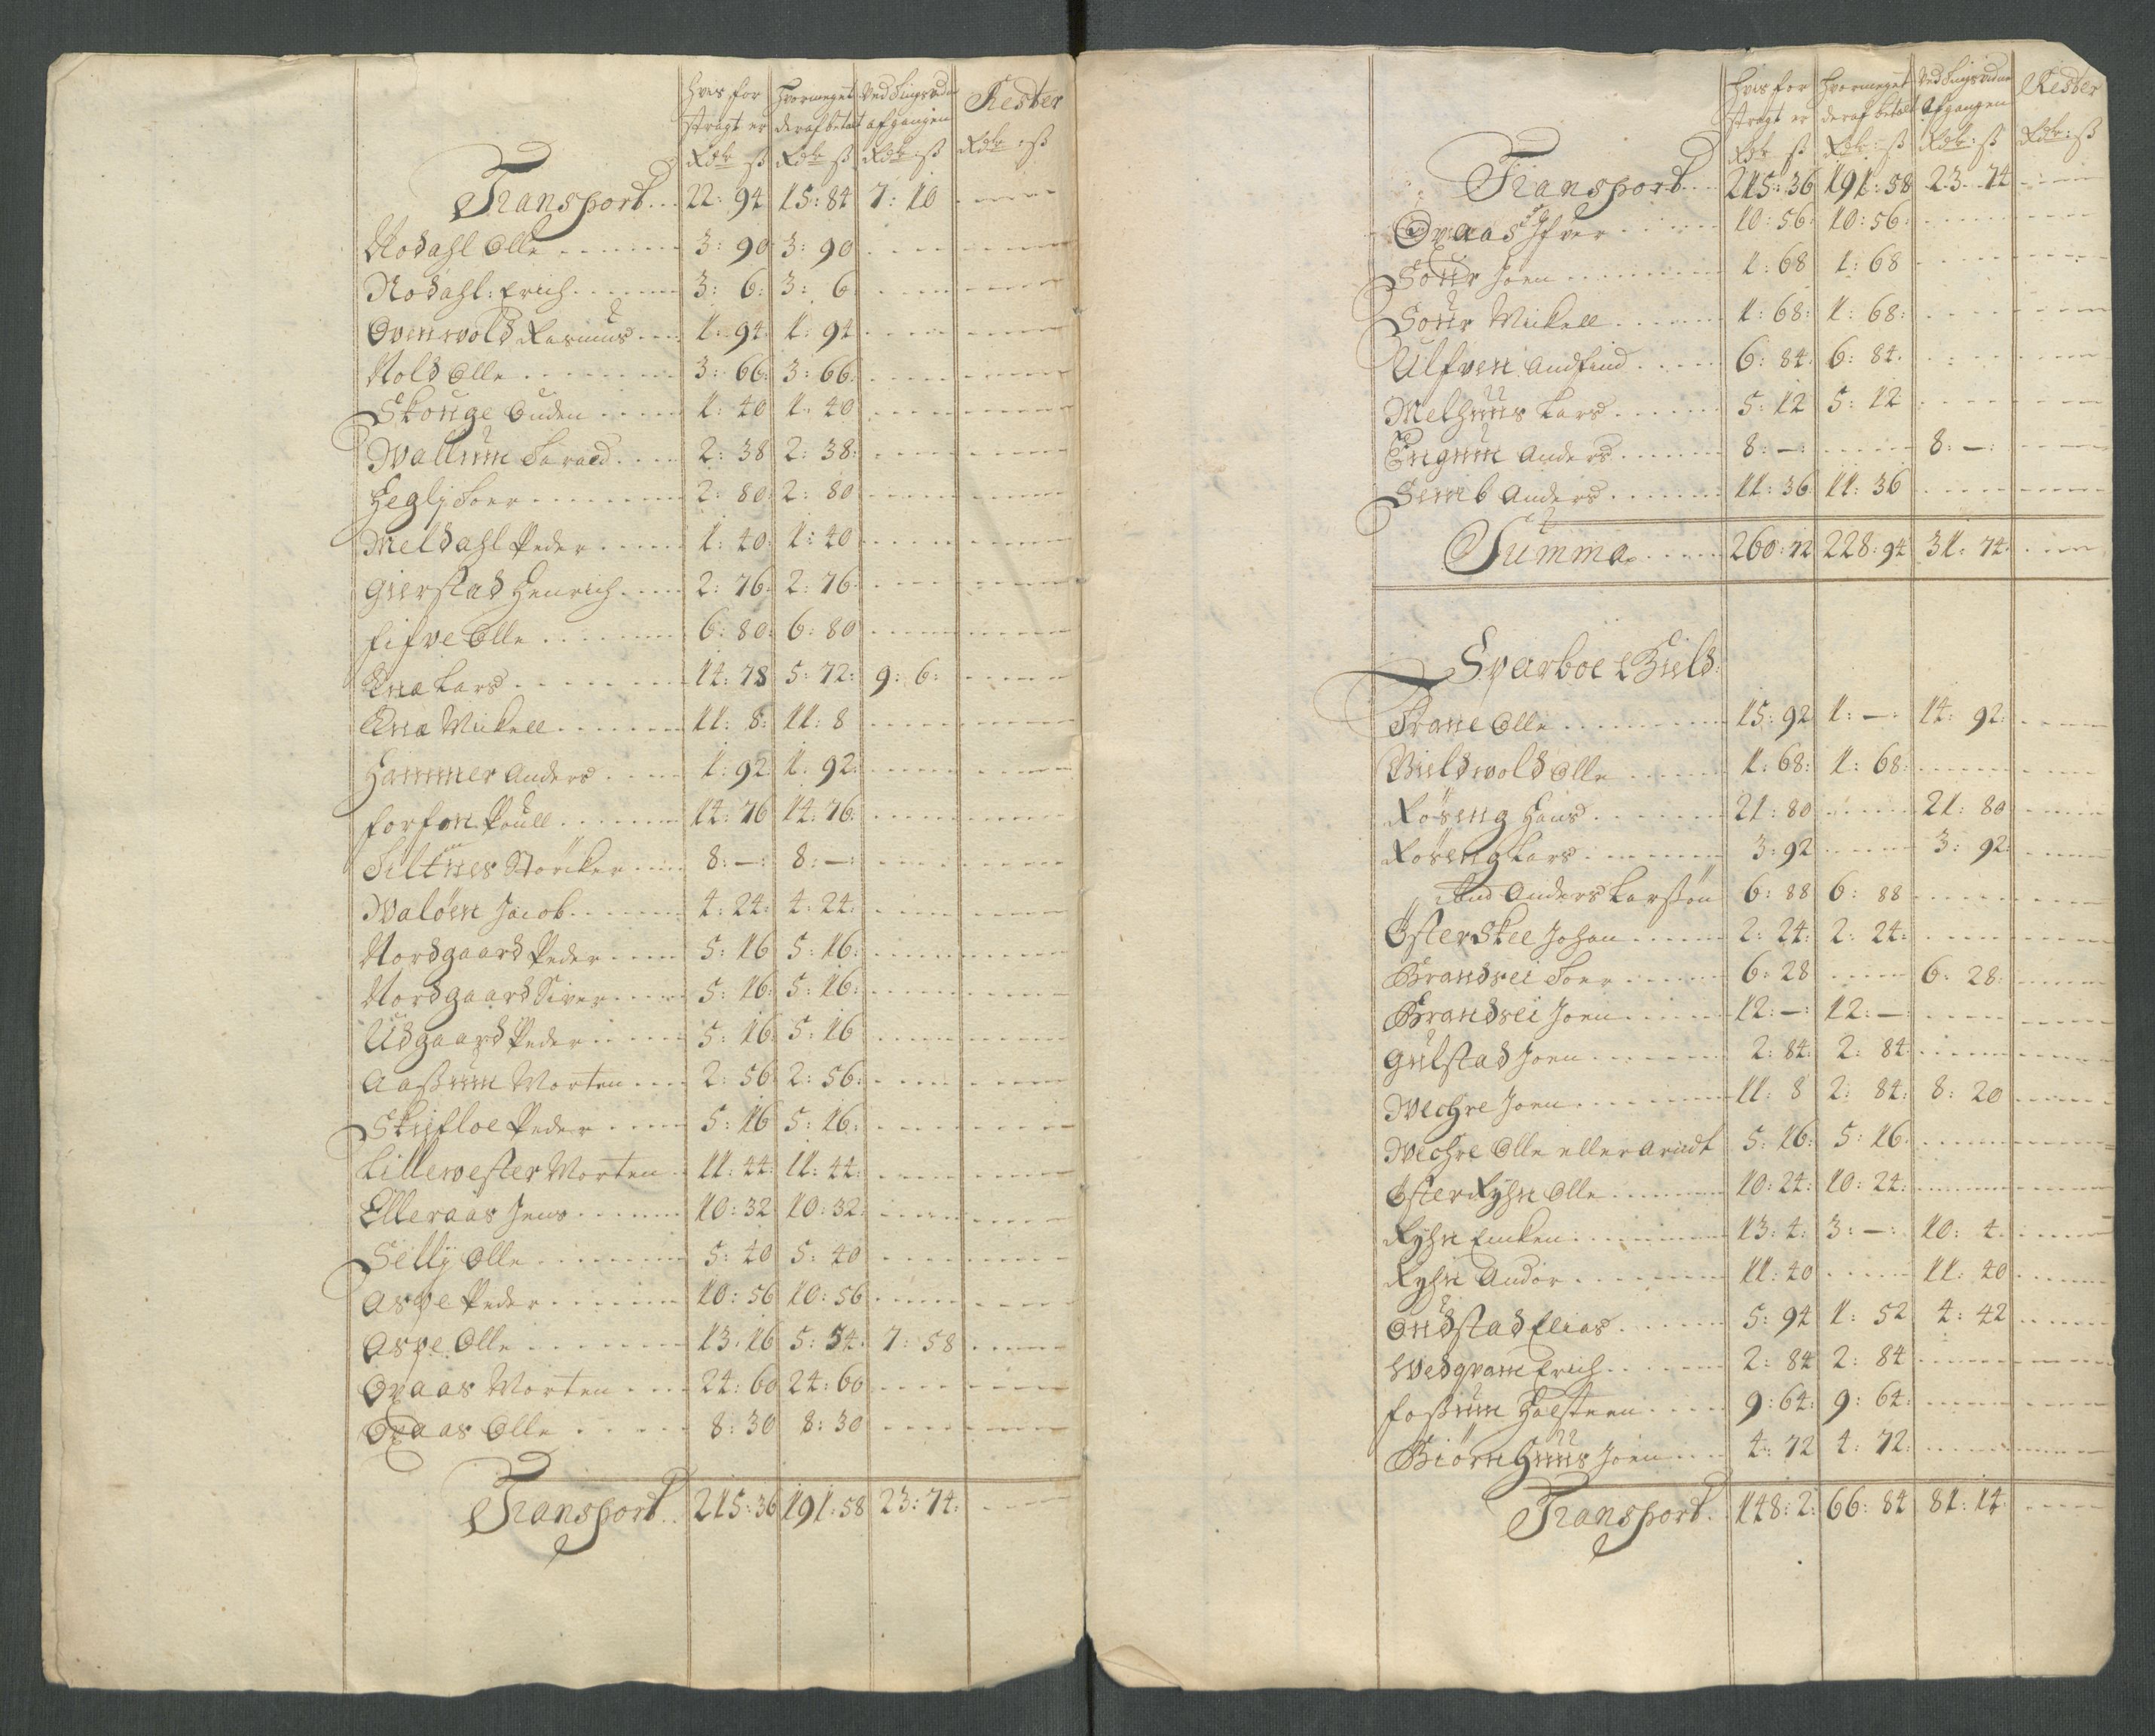 Hvis for Hvormeget Ved Tingsvidne Rester
stragt er deraf betalt afgangen
Rdr ß Rdr ß Rdr: ß Rdr: ß
Transport.. 22: 94 15: 84 7: 10
Rodahl Olle 3: 90 3: 90
Rodahl: Erich 3: 6: 3: 6
Ovenwold Rasmus 1: 94: 1: 94
Hold Olle 3: 66: 3: 66:
Skouge Ouden 1: 40 1: 40
Wallum Harald 2: 38 2: 38:
Heglj Toer 2: 80: 2: 80
Meldahl Peder 1: 40: 1: 40
Gierstad Henrich 2: 76: 2: 76:
fifve Olle 6: 80: 6: 80
Enæ Lars 14: 78 5: 72: 9: 6:
Enæ Mickell 11: 8: 11: 8
Hammer Anders 1: 92 1: 92:
forfon Poull 14: 76 14: 76:
Tiltnes Størcker 8: —: 8: —:
Waløen Jacob 4: 24: 4: 24:
Nordgaard Peder 5: 16 5: 16:
Nordgaard Siver 5: 16: 5: 16:
Udgaard Peder 5: 16: 5: 16
Aaßum Morten 2: 56 2: 56:
Skiefloe Peder 5: 16 5: 16:
Lillewester Morten 11: 44: 11: 44:
Elleraas Jens 10: 32 10: 32:
Sellj Olle 5: 40 5: 40
Aspe Peder 10: 56 10: 56
Aspe Olle 13: 16 5: 54: 7: 58
Opaas Morten 24: 60 24: 60
Opaas Olle 8: 30 8: 30
Transport.. 215: 36 191: 58 23: 74:
Hvis for Hvormeget Ved Tingsvidne Rester
stragt er deraf betalt Afgangen
Rdr ß Rdr: ß Rdr: ß Rdr: ß
Transport... 215: 36 191: 58 23 74
Opaas Ifver 10: 56: 10: 56:
Soür Joen 1: 68 1: 68
Soür Mickell 1: 68: 1: 68:
Ulfven Andfind 6: 84: 6: 84:
Melhuus Lars 5: 12 5: 12
Engum Anders 8: —: 8: —:
Semb Anders 11: 36 11: 36
Summa 260: 72 228: 94 31: 74:
Sparboe Gield:
Trane Olle 15: 92 1: —: 14: 92:
Bieldwold Olle 1: 68: 1: 68:
Røseng Hans 21: 80 21: 80
Røseng Lars 3: 92 3: 92:
And Anders Larßøn 6: 88 6: 88
Øster Skee Johan 2: 24: 2: 24:
Brandsei Toer 6: 28 6: 28:
Brandsei Joen 12: —: 12: —:
Gulstad Joen 2: 84: 2: 84:
Wechre Joen 11: 8 2: 84: 8: 20
Wechre Olle eller Arndt 5: 16: 5: 16:
Øster Ryhn Olle 10: 24: 10: 24:
Ryhn Encken 13: 4: 3: —: 10: 4:
Ryhn Andor 11: 40 11: 40
Ondstad Elias 5: 94 1: 52 4: 42
Wedgvam Erich 2: 84 2: 84
foßum Holsteen 9: 64: 9: 64:
Biørnhuus Joen 4: 72 4: 72:
Transport. 148: 2: 66: 84 81: 14: